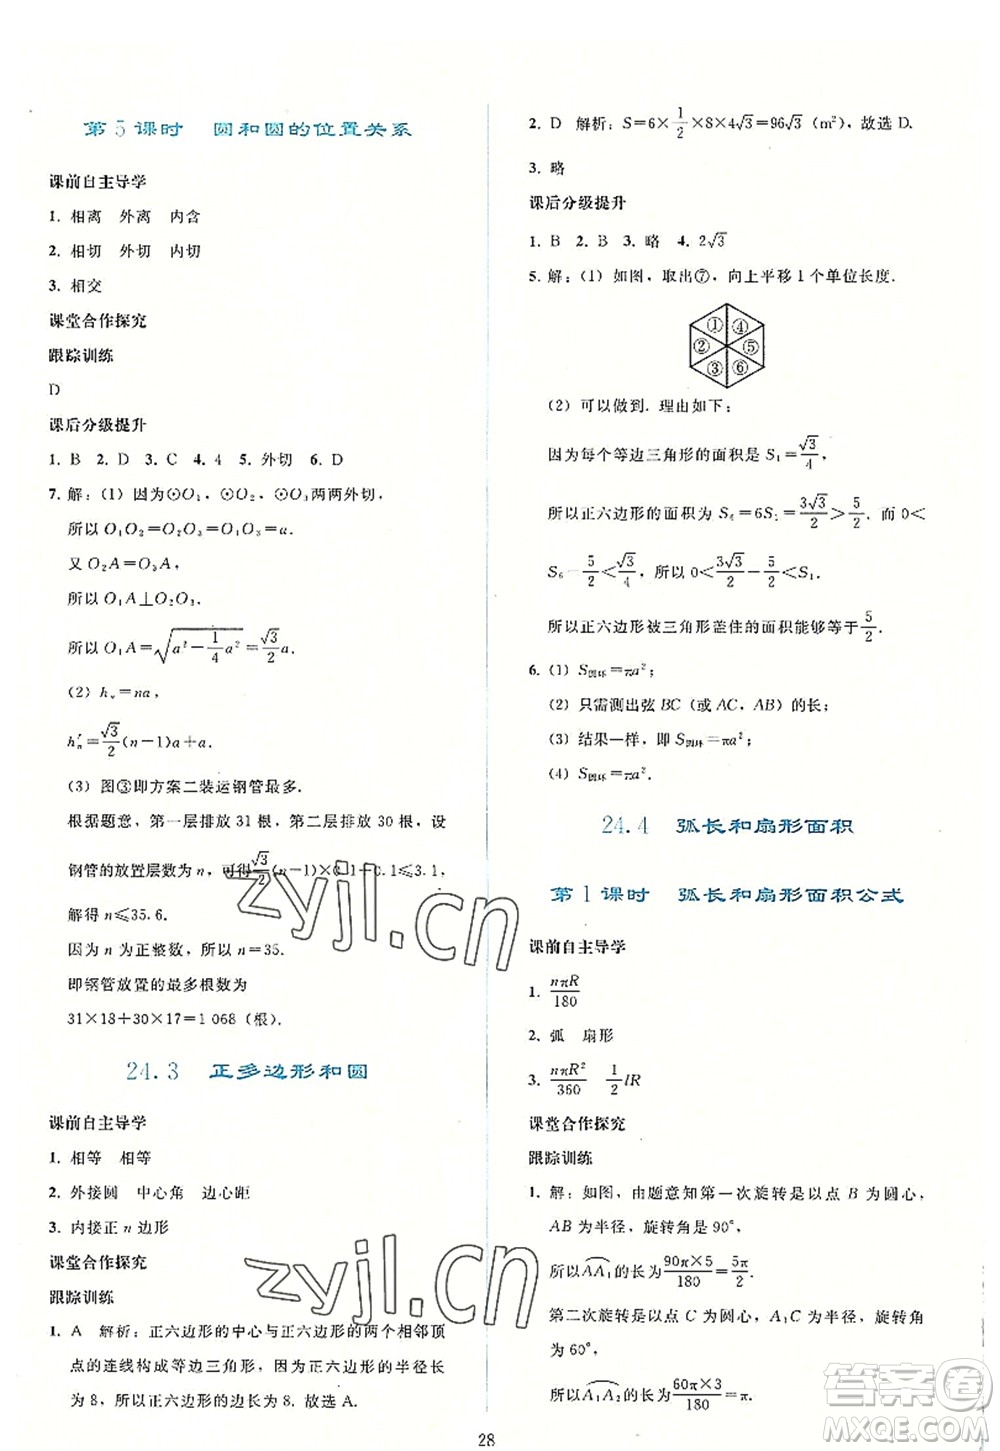 第 5 课时　圆和圆的位置关系
课前自主导学
1. 相离　外离　内含
2. 相切　外切　内切
3. 相交
课堂合作探究
跟踪训练
D
课后分级提升
1. B　2. D　3. C　4. 4　5. 外切　6. D
7. 解：(1) 因为⊙O₁，⊙O₂，⊙O₃两两外切，
所以 O₁O₂=O₂O₃=O₁O₃=a.
又 O₂A=O₃A，
所以 O₁A⊥O₂O₃.
所以 O₁A=√(a²-1/4 a²)=√3/2 a.
(2) hₙ=na，
h′ₙ=√3/2(n-1)a+a.
(3) 图③即方案二装运钢管最多.
根据题意，第一层排放 31 根，第二层排放 30 根，设
钢管的放置层数为 n，可得√3/2(n-1)×0.1+0.1≤3.1.
解得 n≤35.6.
因为 n 为正整数，所以 n=35.
即钢管放置的最多根数为
31×18+30×17=1 068(根).
24.3　正多边形和圆
课前自主导学
1. 相等　相等
2. 外接圆　中心角　边心距
3. 内接正 n 边形
课堂合作探究
跟踪训练
1. A　解析：正六边形的中心与正六边形的两个相邻顶
点的连线构成等边三角形，因为正六边形的半径长
为 8，所以正六边形的边长为 8. 故选 A.
2. D　解析：S=6×1/2×8×4√3=96√3 (m²)，故选 D.
3. 略
课后分级提升
1. B　2. B　3. 略　4. 2√3
5. 解：(1) 如图，取出⑦，向上平移 1 个单位长度.
① ④
② ⑤
③ ⑥
(2) 可以做到. 理由如下：
因为每个等边三角形的面积是 S₁=√3/4，
所以正六边形的面积为 S₆=6S₁=3√3/2>5/2. 而 0<
S₆-5/2<√3/4，所以 0<3√3/2-5/2<S₁.
所以正六边形被三角形盖住的面积能够等于5/2.
6. (1) S圆环=πa²；
(2) 只需测出弦 BC (或 AC，AB) 的长；
(3) 结果一样，即 S圆环=πa²；
(4) S圆环=πa².
24.4　弧长和扇形面积
第 1 课时　弧长和扇形面积公式
课前自主导学
1. nπR/180
2. 弧　扇形
3. nπR²/360　1/2 lR
课堂合作探究
跟踪训练
1. 解：如图，由题意知第一次旋转是以点 B 为圆心，
AB 为半径，旋转角是 90°，
所以AA₁的长为90π×5/180=5π/2.
第二次旋转是以 C 为圆心，A₁C 为半径，旋转角
为 60°，
所以A₁A₂的长=60π×3/180=π.
28
zyjl.cn
zyjl.cn
答案圈
MXQE.COM